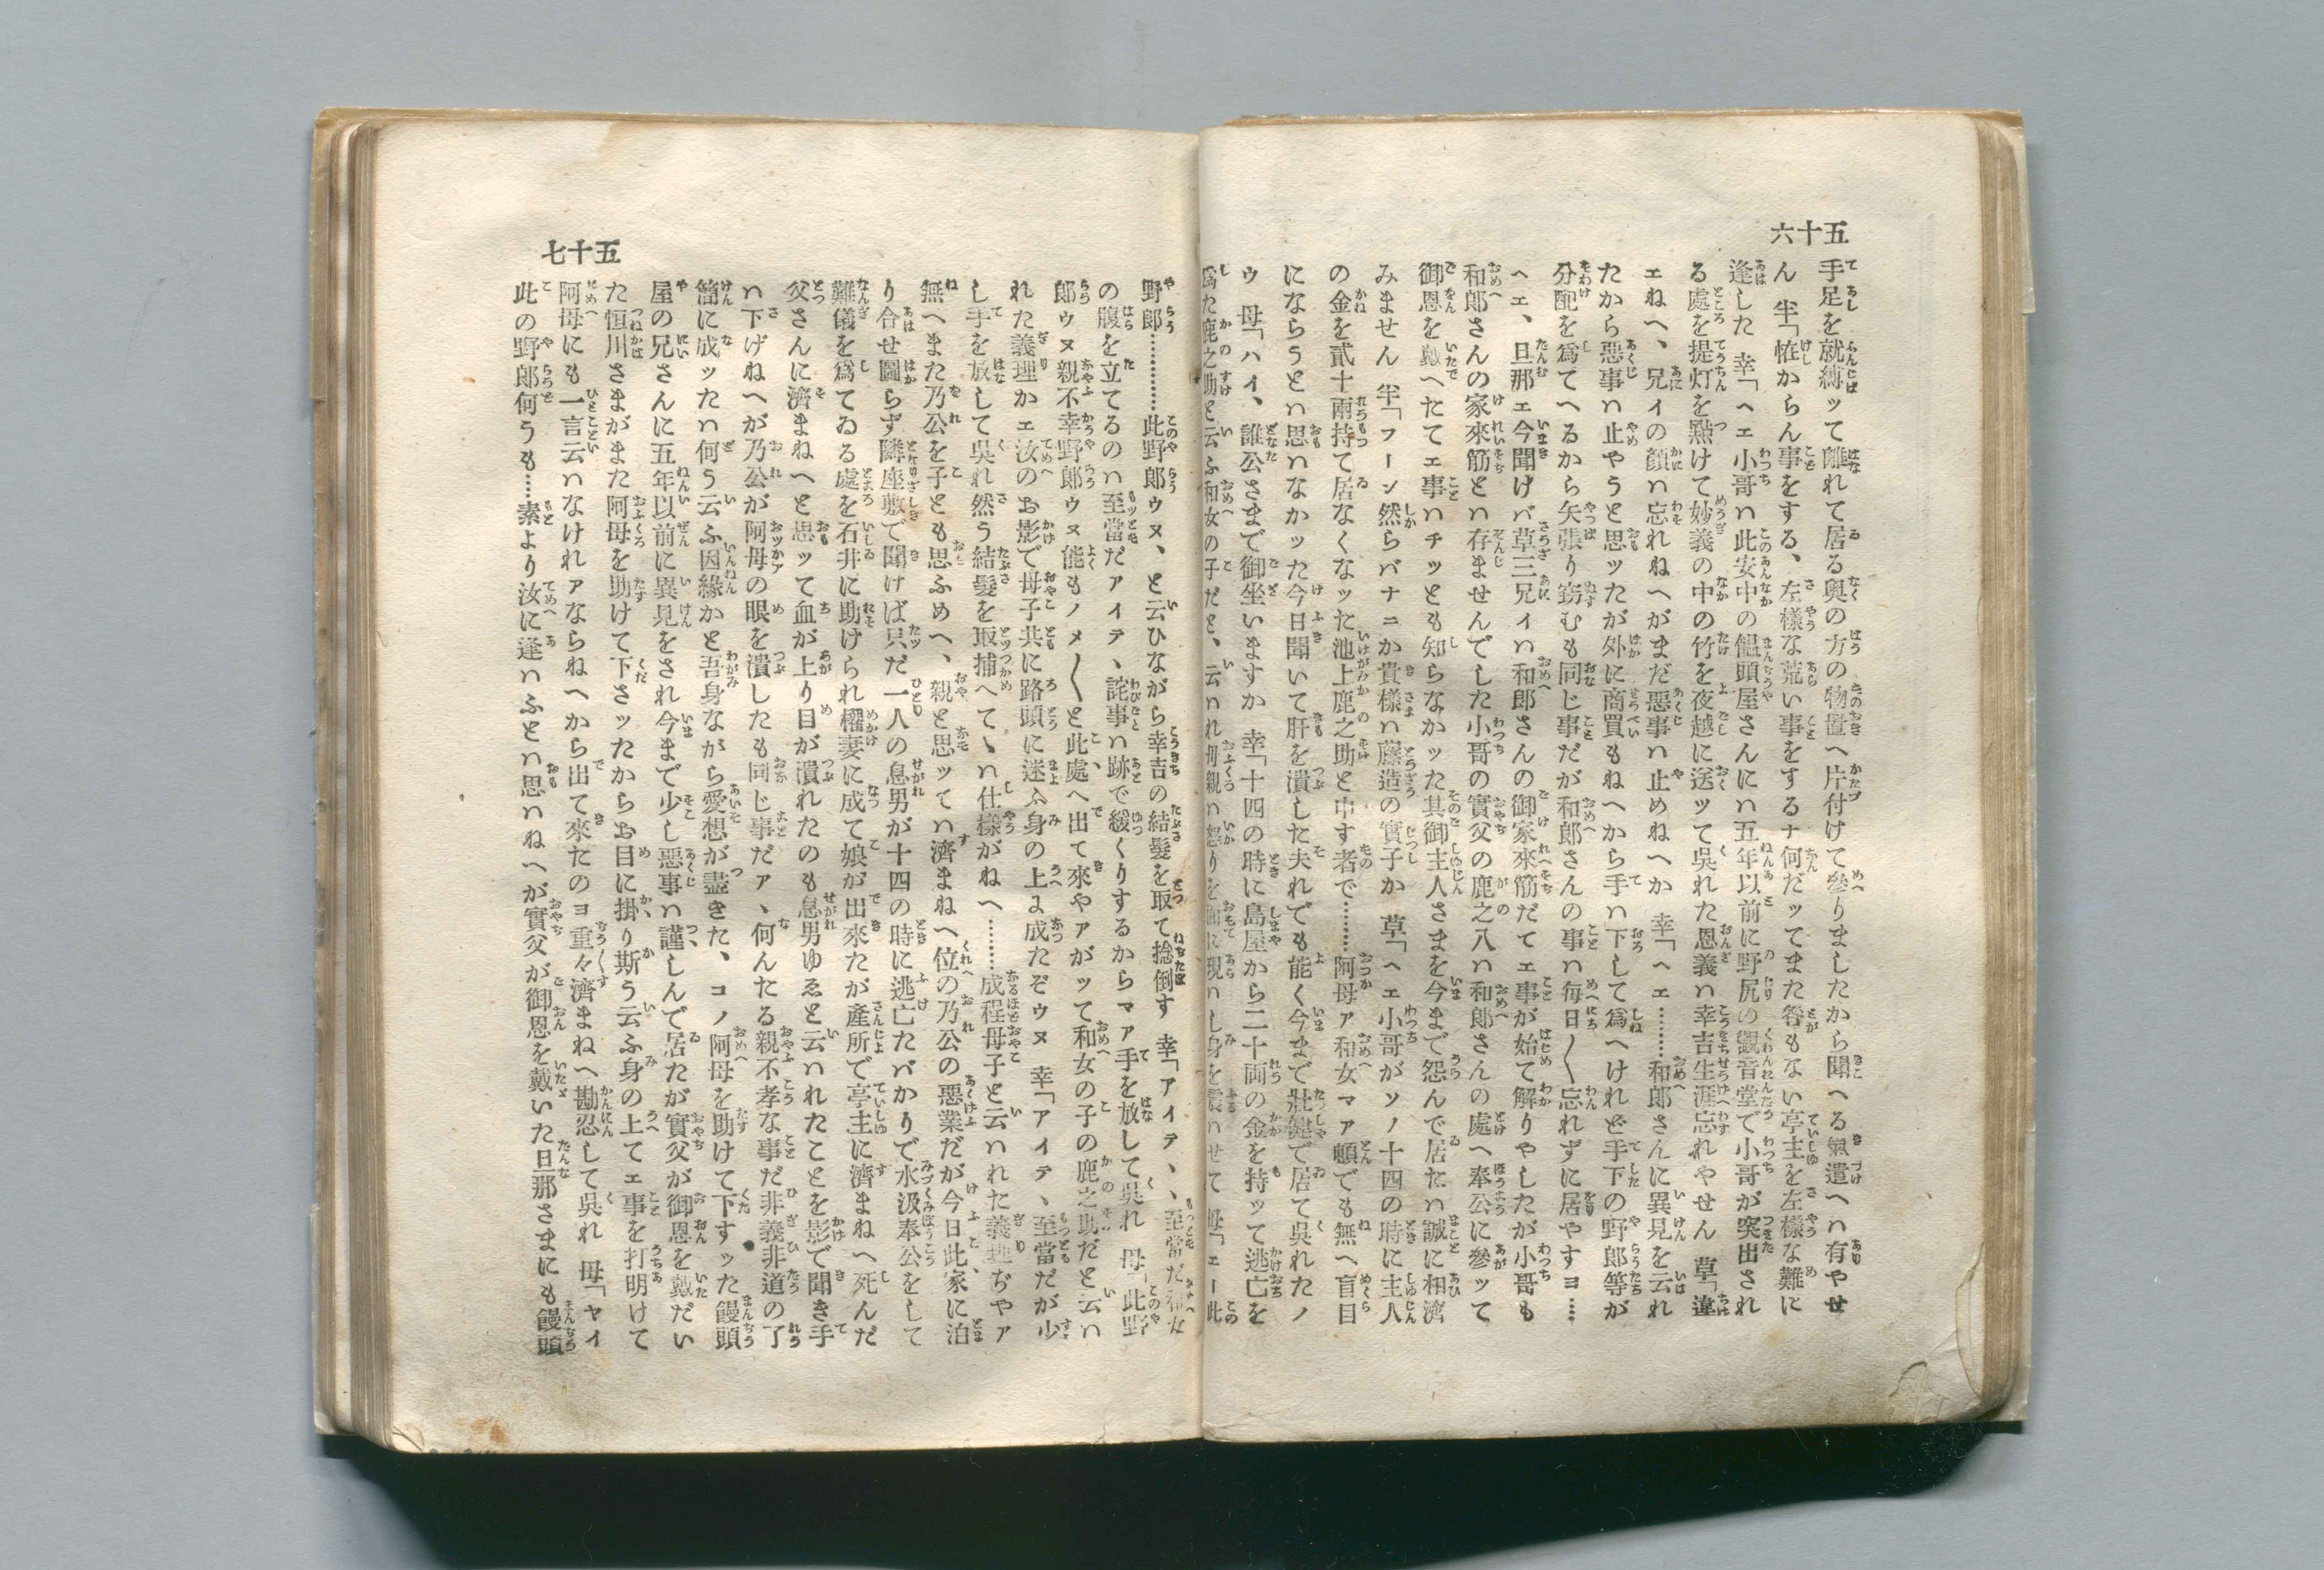 五十六
手足を就縛ッて離れて居る輿の方の物置へ片付けて參りましたから聞へる氣遣へハ有やせ
ん 半「恠からん事をする、左樣な荒い事をするナ何だッてまた咎もない亭主を左樣な難に
逢した 幸「ヘエ小哥ハ此安中の饅頭屋さんにハ五年以前に野尻の觀音堂で小哥が突出され
る處を提灯を點けて妙義の中の竹を夜越に送ッて吳れた恩義ハ幸吉生涯忘れやせん 草「違
エねへ、兄イの顏ハ忘れねへがまだ惡事ハ止めねへか 幸「ヘエ………和郎さんに異見を云れ
たから惡事ハ止やうと思ッたが外に商買もねへから手ハ下して爲へけれど手下の野郎等が
分配を爲てへるから矢張り竊むも同じ事だが和郎さんの事ハ毎日〱忘れずに居やすヨ…
ヘエ、旦那エ今聞けバ草三兄イハ和郎さんの御家來筋だてエ事が始て解りやしたが小哥も
和郎さんの家來筋とハ存ませんでした小哥の實父の鹿之八ハ和郎さんの處へ奉公に參ッて
御恩を戴へたてエ事ハチッとも知らなかッた其御主人さまを今まで怨んで居たハ誠に相濟
みません 半「フーン然らバナニか貴樣ハ藤造の實子か 草「ヘエ小哥がソノ十四の時に主人
の金を貳十兩持て居なくなッた池上鹿之助と申す者で………阿母ア和女マア頓でも無へ盲目
にならうとハ思ハなかッた今日聞いて肝を潰した夫れでも能く今まで壯健で居て吳れたノ
ウ 母「ハイ、誰公さまで御坐いますか 幸「十四の時に島屋から二十両の金を持ッて逃亡を
爲た鹿之助と云ふ和女の子だと、云ハれ母親ハ怒りを面に現ハし身を震ハせて 母「エー此
五十七
野郎…………此野郎ウヌ、と云ひながら幸吉の結髮を取て捻倒す 幸「アイテヽヽ至當だ和女
の腹を立てるのハ至當だアイテヽ詫事ハ跡で緩くりするからマア手を放して吳れ 母「此野
郎ウヌ親不幸野郎ウヌ能もノメ〱と此處へ出て來やアがッて和女の子の鹿之助だと云ハ
れた義理かエ汝のお影で母子共に路頭に迷ふ身の上よ成たぞウヌ 幸「アイテヽ至當だが少
し手を放して吳れ然う結髮を取捕へてヽハ仕樣がねへ………成程母子と云ハれた義理ぢやア
無へまた乃公を子とも思ふめへ、親と思ッてハ濟まねへ位の乃公の惡業だが今日此家に泊
り合せ圖らず隣座敷で聞けば只だ一人の息男が十四の時に逃亡たバかりで水汲奉公をして
難儀を爲てゐる處を石井に助けられ櫂妻に成て娘が出來たが產所で亭主に濟まねへ死んだ
父さんに濟まねへと思ッて血が上り目が潰れたのも息男ゆゑと云ハれたことを影で聞き手
ハ下げねへが乃公が阿母の眼を潰したも同じ事だアヽ何んたる親不孝な事だ非義非道の了
簡に成ッたハ何う云ふ因緣かと吾身ながら愛想が盡きた、コノ阿母を助けて下すッた饅頭
屋の兄さんに五年以前に異見をされ今まで少し惡事ハ謹しんで居たが實父が御恩を戴だい
た恒川さまがまた阿母を助けて下さッたからお目に掛り斯う云ふ身の上てエ事を打明けて
阿母にも一言云ハなけれアならねへから出て來たのヨ重々濟まねへ勘忍して吳れ 母「ヤイ
此の野郎何うも…素より汝に逢ハふとハ思ハねへが實父が御恩を戴いた旦那さまにも饅頭